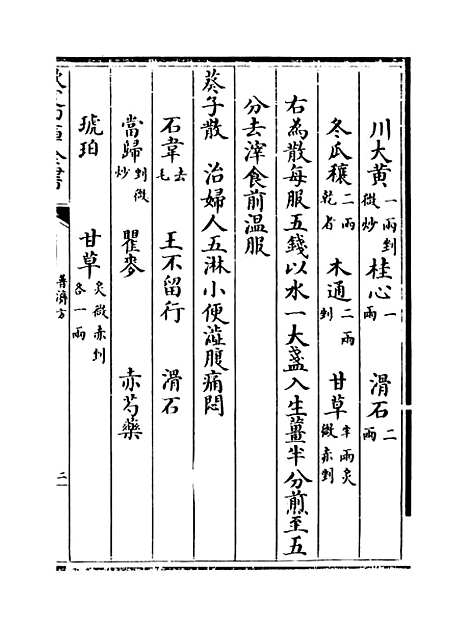 川大黄一兩剉微炒 桂心一兩 滑石二兩
冬瓜穰二兩乾者 木通二兩剉 甘草半兩炙微赤剉
右為散每服五錢以水一大盞入生薑半分煎至五
分去滓食前温服
葵子散 治婦人五淋小便澁腹痛悶
石韋去毛 王不留行 滑石
當歸剉微炒 瞿麥 赤芍藥
琥珀 甘草炙微赤剉各一兩
欽定四庫全書 普濟方 二一